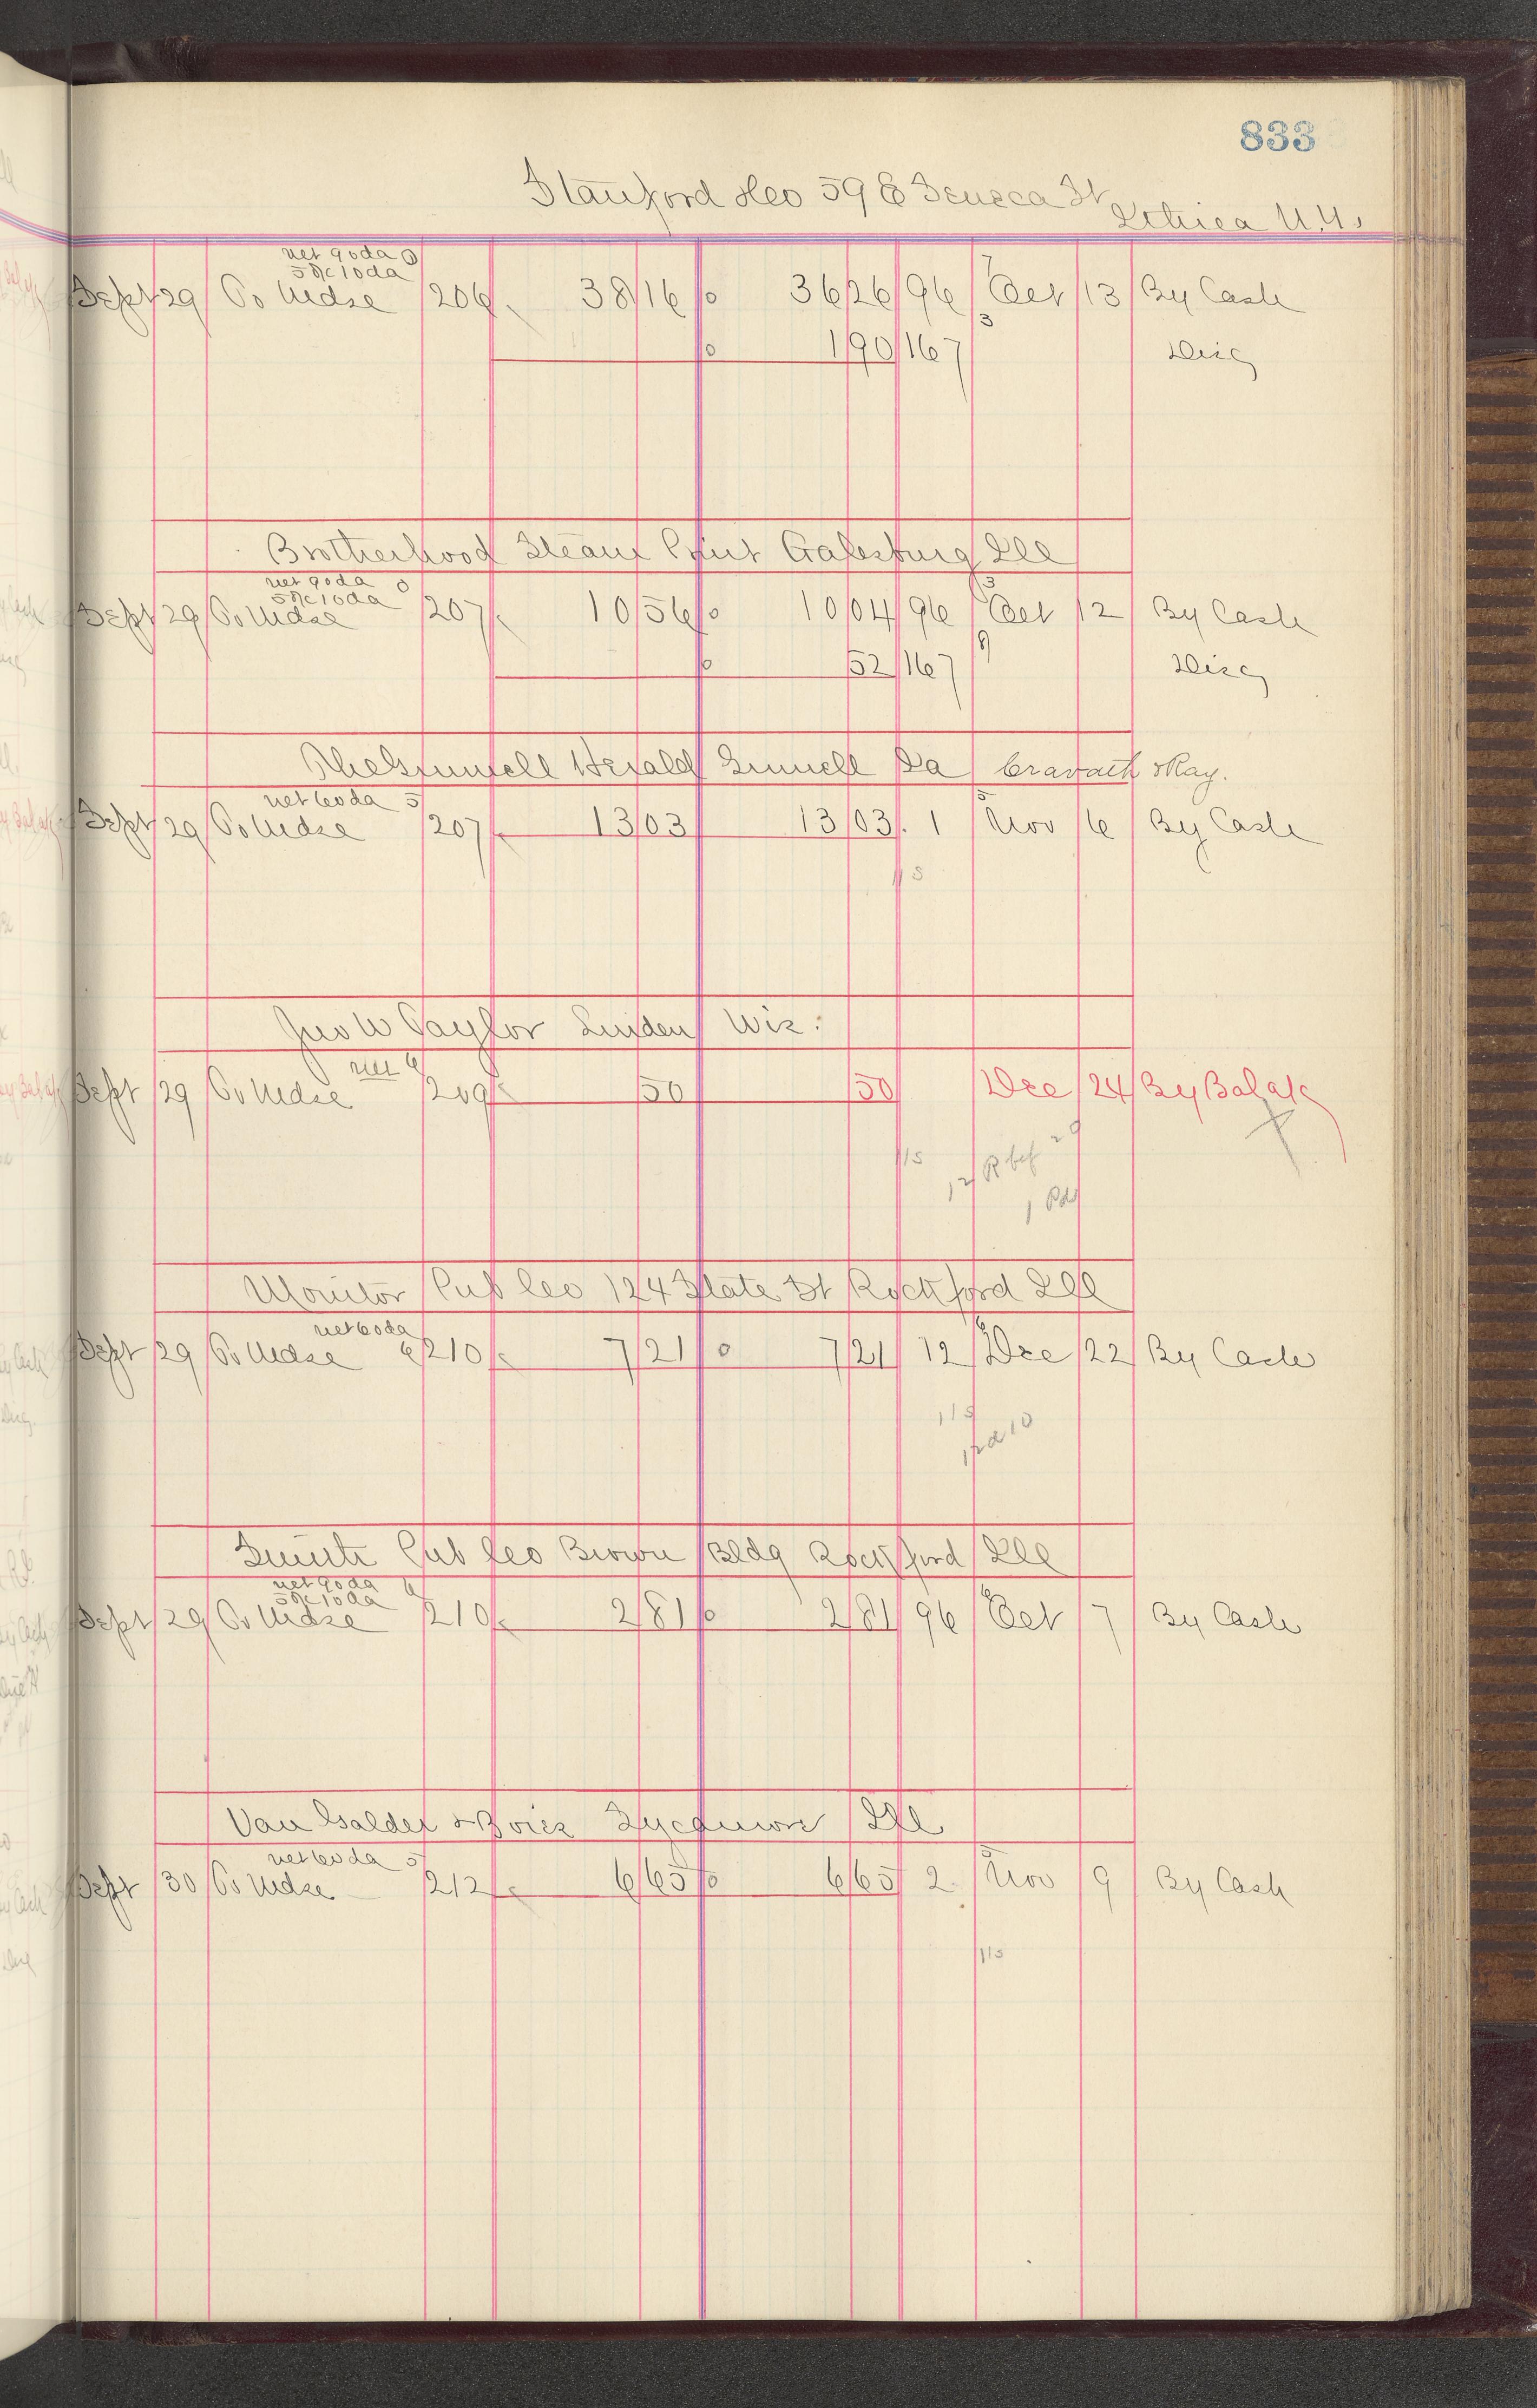 833
Stanford & Co 59 E Seneca St Ithica N.Y.
net 90da 0
5%10da
Sept 29 To Mdse 206 38 16 36 26 96 7 Oct 13 By Cash
3
1 90 167 Disc
Brotherhood Steam Print Galesburg Ill
net 90da 0
5%10da 3
Sept 29 To Mdse 207 10 56 10 04 96 Oct 12 By Cash
52 167 Disc
The Grinnell Herald Grinnell Ia Cravath & Ray.
net 60da 5
Sept 29 To Mdse 207 13 03 13 03 1 Nov 6 By Cash
Jno W Taylor Linden Wis.
net 6
Sept 29 To Mdse 209 50 50 Dec 24 By Bal a/c
115
1 Pd
Monitor Pub Co 124 State St Rockford Ill
net 60da
Sept 29 To Mdse 6 210 7 21 7 21 12 Dec 22 By Cash
115
Pub Co Brown Bldg Rockford Ill
net 90da 6
5%10da
Sept 29 To Mdse 210 2 81 2 81 96 Oct 7 By Cash
Van Galder & Boies Sycamore Ill
net 60da 5
Sept 30 To Mdse 212 6 65 6 65 2 Nov 9 By Cash
115